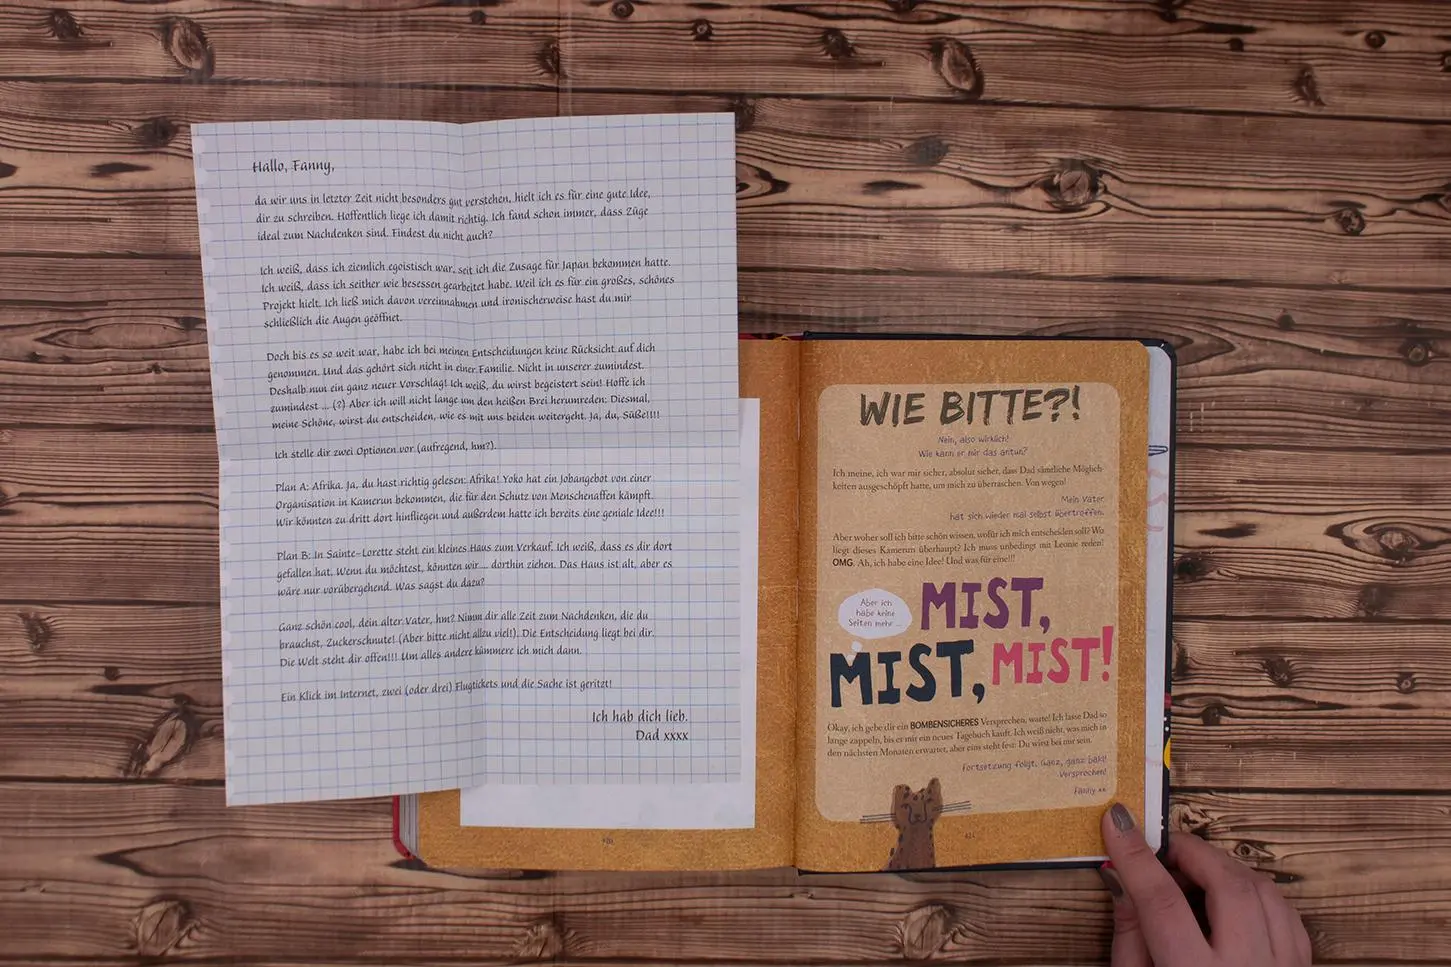 Hallo, Fanny,
da wir uns in letzter Zeit nicht besonders gut verstehen, hielt ich es für eine gute Idee,
dir zu schreiben. Hoffentlich liege ich damit richtig. Ich fand schon immer, dass Züge
ideal zum Nachdenken sind. Findest du nicht auch?
Ich weiß, dass ich ziemlich egoistisch war, seit ich die Zusage für Japan bekommen hatte.
Ich weiß, dass ich seither wie besessen gearbeitet habe. Weil ich es für ein großes, schönes
Projekt hielt. Ich ließ mich davon vereinnahmen und ironischerweise hast du mir
schließlich die Augen geöffnet.
Doch bis es so weit war, habe ich bei meinen Entscheidungen keine Rücksicht auf dich
genommen. Und das gehört sich nicht in einer Familie. Nicht in unserer zumindest.
Deshalb nun ein ganz neuer Vorschlag! Ich weiß, du wirst begeistert sein! Hoffe ich
zumindest ... (?) Aber ich will nicht lange um den heißen Brei herumreden: Diesmal,
meine Schöne, wirst du entscheiden, wie es mit uns beiden weitergeht. Ja, du, Süße!!!!
Ich stelle dir zwei Optionen vor (aufregend, hm?).
Plan A: Afrika. Ja, du hast richtig gelesen: Afrika! Yoko hat ein Jobangebot von einer
Organisation in Kamerun bekommen, die für den Schutz von Menschenaffen kämpft.
Wir könnten zu dritt dort hinfliegen und außerdem hätte ich bereits eine geniale Idee!!!
Plan B: In Sainte-Lorette steht ein kleines Haus zum Verkauf. Ich weiß, dass es dir dort
gefallen hat. Wenn du möchtest, könnten wir ... dorthin ziehen. Das Haus ist alt, aber es
wäre nur vorübergehend. Was sagst du dazu?
Ganz schön cool, dein alter Vater, hm? Nimm dir alle Zeit zum Nachdenken, die du
brauchst, Zuckerschnute! (Aber bitte nicht allzu viel!). Die Entscheidung liegt bei dir.
Die Welt steht dir offen!!! Um alles andere kümmere ich mich dann.
Ein Klick im Internet, zwei (oder drei) Flugtickets und die Sache ist geritzt!
Ich hab dich lieb.
Dad xxxx
WIE BITTE?!
Nein, also wirklich!
Wie kann er mir das antun?
Ich meine, ich war mir sicher, absolut sicher, dass Dad sämtliche Möglich-
keiten ausgeschöpft hatte, um mich zu überraschen. Von wegen!
Mein Vater
hat sich wieder mal selbst übertroffen.
Aber woher soll ich bitte schön wissen, wofür ich mich entscheiden soll? Wo
liegt dieses Kamerun überhaupt? Ich muss unbedingt mit Leonie reden!
OMG. Ah, ich habe eine Idee! Und was für eine!!!
Aber ich
habe keine
Seiten mehr ...
MIST,
MIST, MIST!
Okay, ich gebe dir ein BOMBENSICHERES Versprechen, warte! Ich lasse Dad so
lange zappeln, bis er mir ein neues Tagebuch kauft. Ich weiß nicht, was mich in
den nächsten Monaten erwartet, aber eins steht fest: Du wirst bei mir sein.
Fortsetzung folgt. Ganz, ganz bald!
Versprochen!
Fanny xx